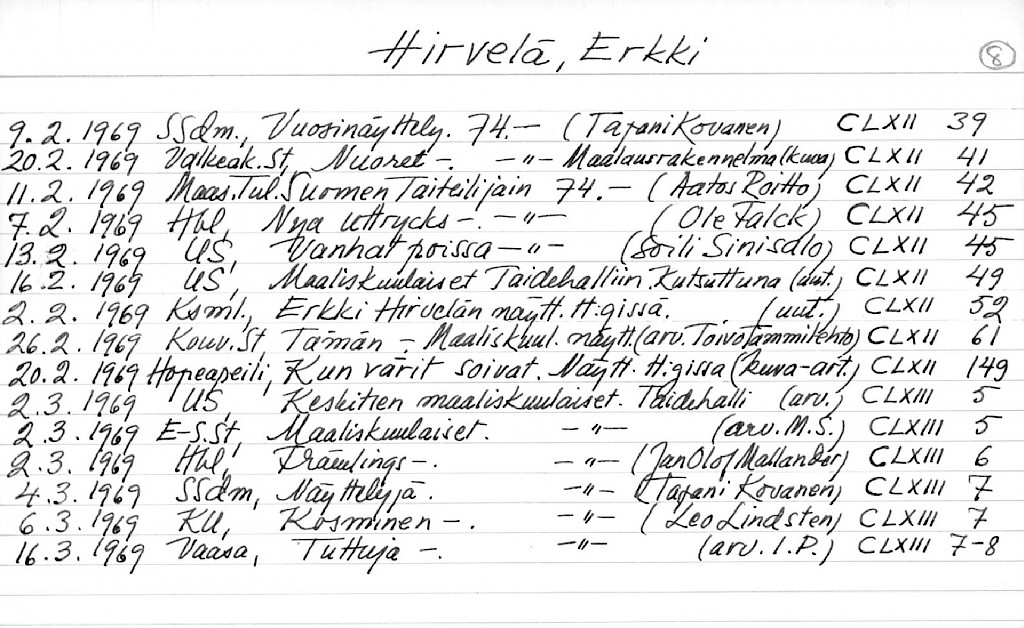 Hirvelä, Erkki 8
9.2.1969 SSdm., Vuosinäyttely. 74.— (Tapani Kovanen) CLXII 39
20.2.1969 Valkeak.St, Nuoret —. —"— Maalausrakennelma (kuva) CLXII 41
11.2.1969 Maas.Tul. Suomen Taiteilijain 74.— (Aatos Roitto) CLXII 42
7.2.1969 Hbl, Nya uttrycks —. —"— (Ole Falck) CLXII 45
13.2.1969 US, Vanhat poissa —"— (Soili Sinisalo) CLXII 45
16.2.1969 US, Maaliskuulaiset Taidehalliin Kutsuttuna (uut.) CLXII 49
2.2.1969 Ksml., Erkki Hirvelän näytt. H:gissä. (uut.) CLXII 52
26.2.1969 Kouv.St, Tämän —. Maaliskuul. näytt. (arv. Toivo Tammilehto) CLXII 61
20.2.1969 Hopeapeili, Kun värit soivat. Näytt. H:gissa (kuva-art.) CLXII 149
2.3.1969 US, Keskitien maaliskuulaiset. Taidehalli (arv.) CLXIII 5
2.3.1969 E-S.St, Maaliskuulaiset. —"— (arv. M.S.) CLXIII 5
2.3.1969 Hbl, Främlings —. —"— (Jan Olof Mallander) CLXIII 6
4.3.1969 SSdm, Näyttelyjä. —"— (Tapani Kovanen) CLXIII 7
6.3.1969 KU, Kosminen —. —"— (Leo Lindsten) CLXIII 7
16.3.1969 Vaasa, Tuttuja —. —"— (arv. I.P.) CLXIII 7-8